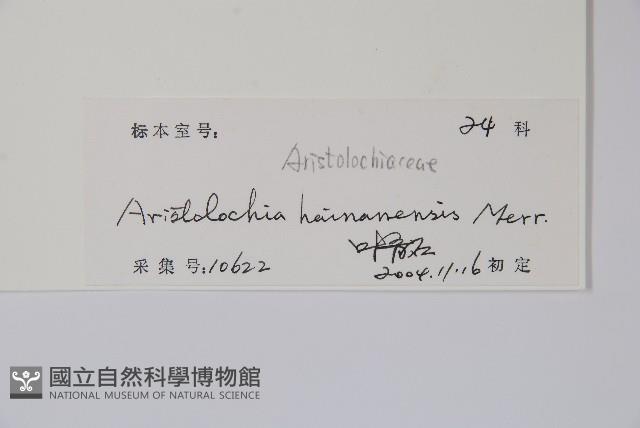 标本室号: 24 科
Aristolochiaceae
Aristolochia hainanensis Merr.
采集号: 10622 2004.11.16 初定
國立自然科學博物館
NATIONAL MUSEUM OF NATURAL SCIENCE